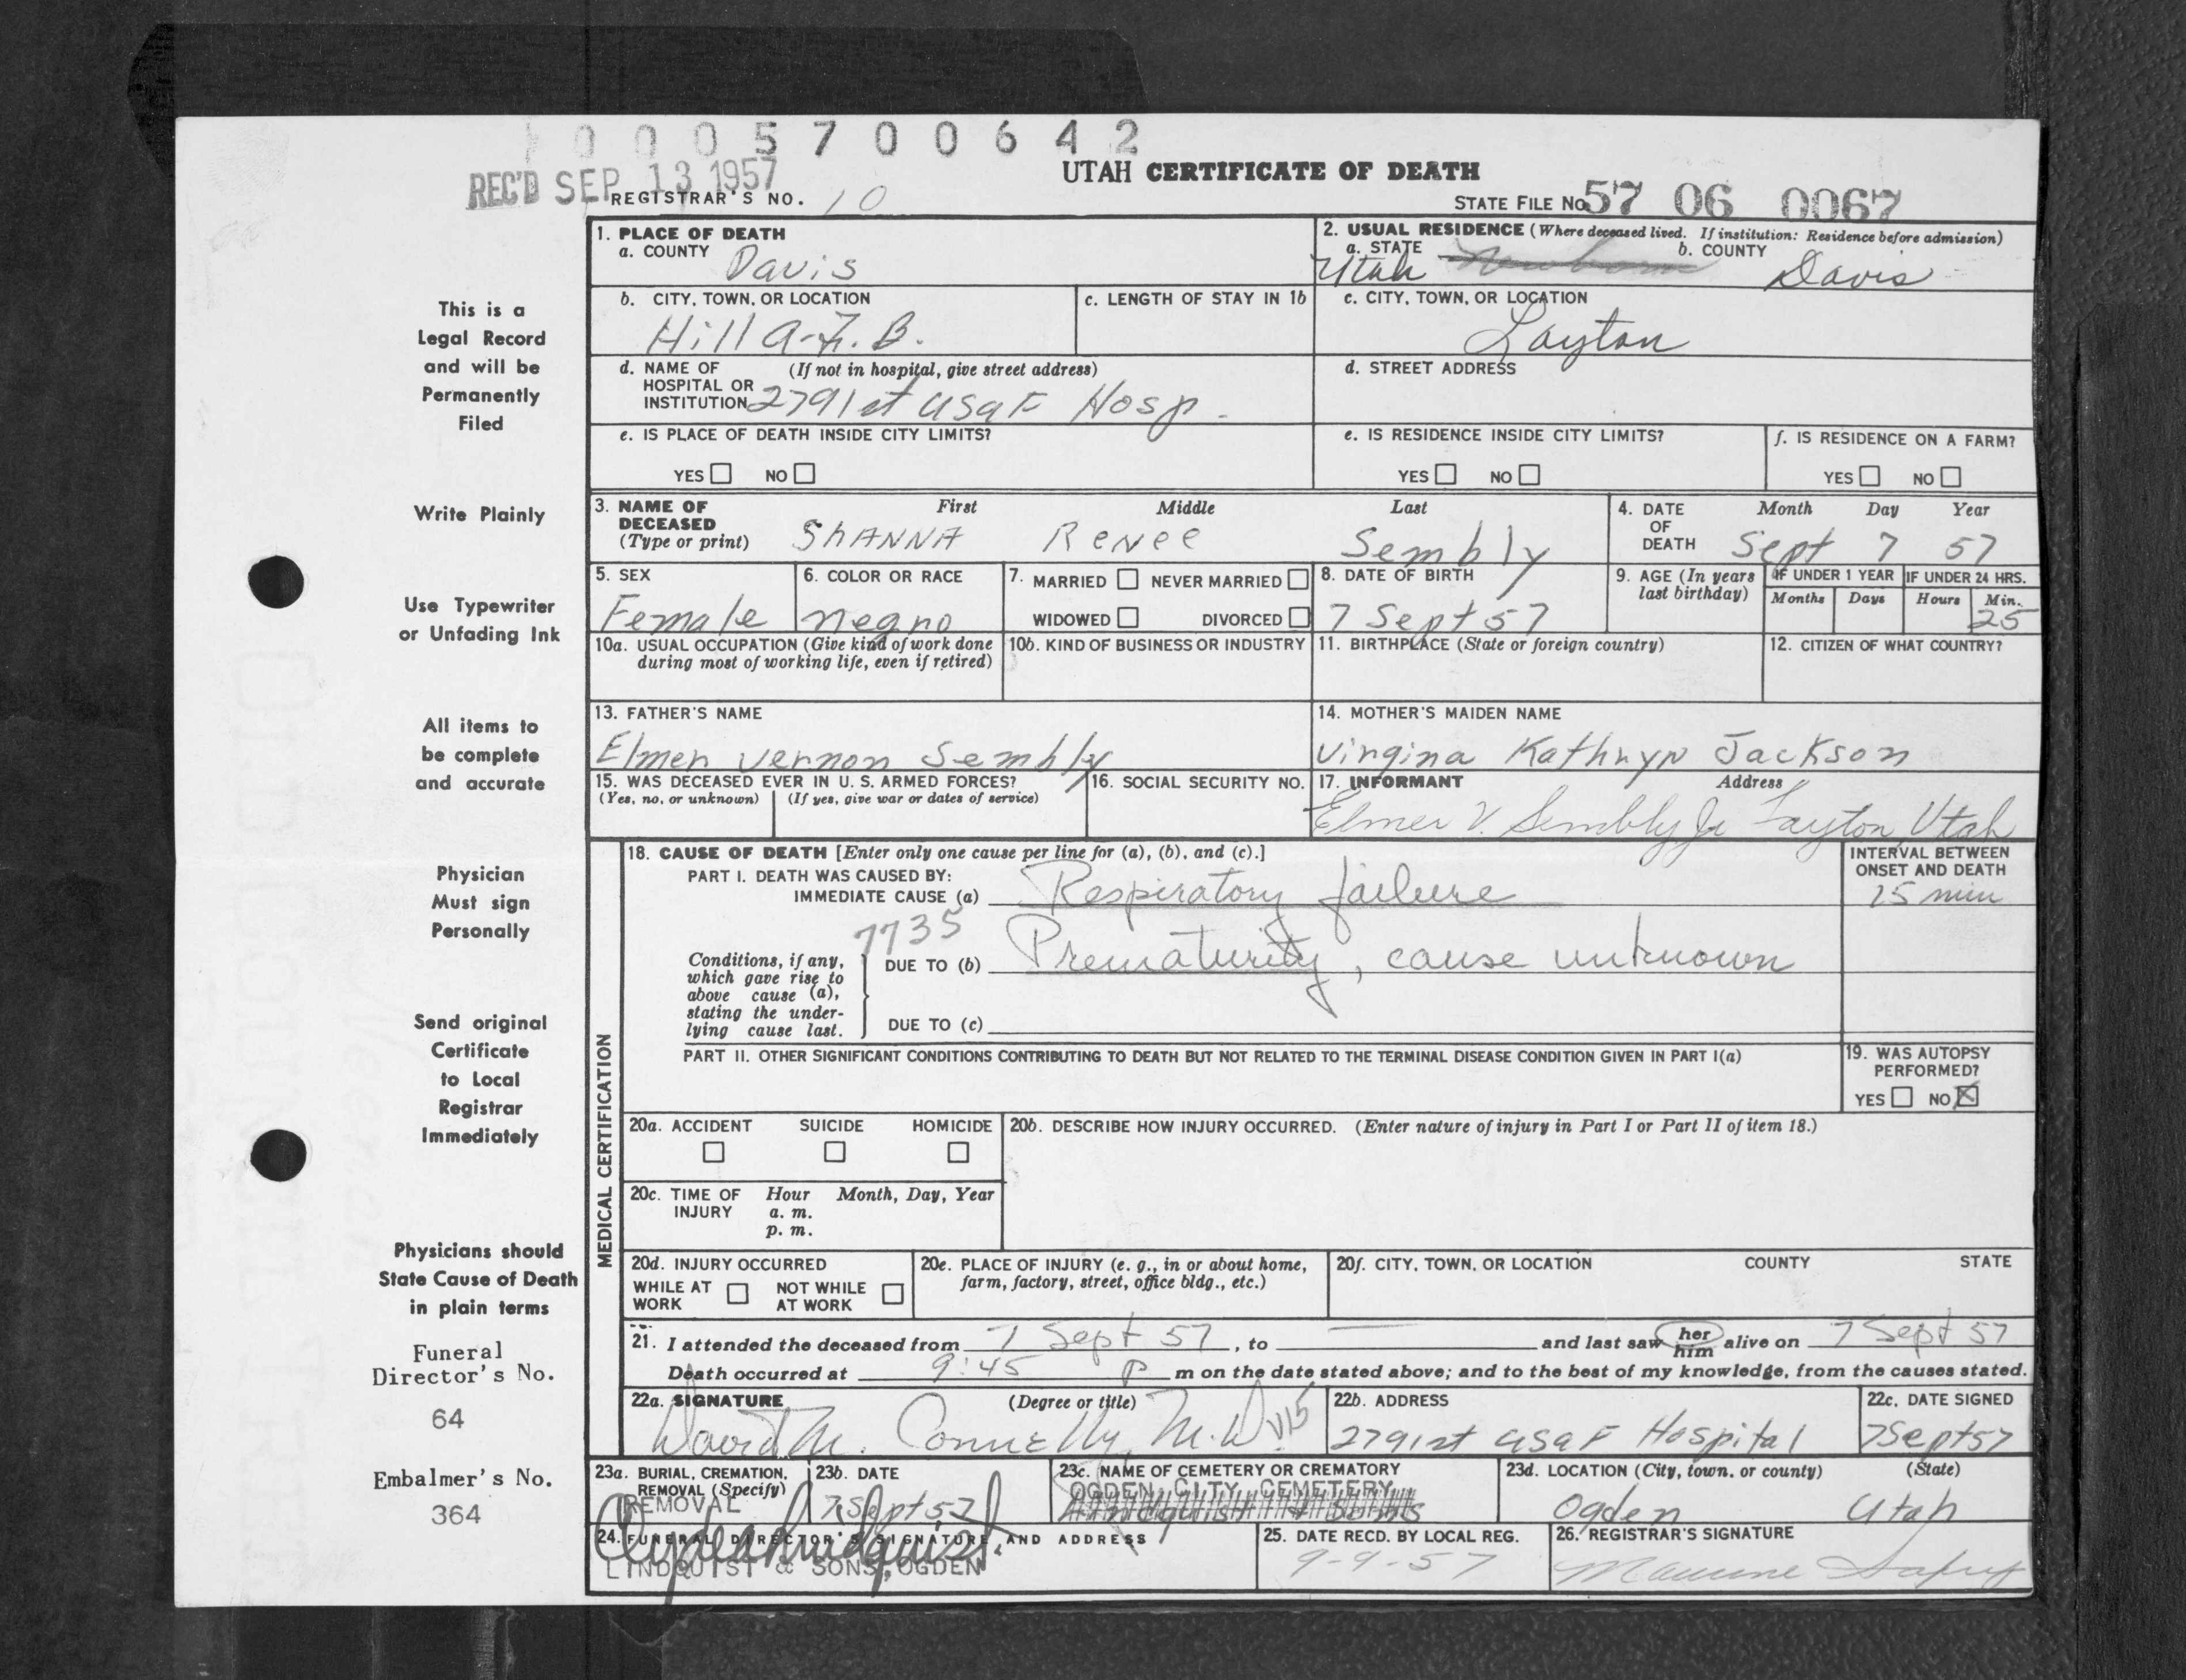 0005700642
REC'D SEP 13 1957
UTAH CERTIFICATE OF DEATH
REGISTRAR'S NO. 10
STATE FILE No 57 06 0067
1. PLACE OF DEATH
a. COUNTY Davis
2. USUAL RESIDENCE (Where deceased lived. If institution: Residence before admission)
a. STATE Utah Newborn b. COUNTY Davis
b. CITY, TOWN, OR LOCATION Hill A.F.B.
c. LENGTH OF STAY IN 1b
c. CITY, TOWN, OR LOCATION Layton
d. NAME OF (If not in hospital, give street address)
HOSPITAL OR
INSTITUTION 2791st USAF Hosp.
d. STREET ADDRESS
e. IS PLACE OF DEATH INSIDE CITY LIMITS?
YES NO
e. IS RESIDENCE INSIDE CITY LIMITS?
YES NO
f. IS RESIDENCE ON A FARM?
YES NO
3. NAME OF DECEASED (Type or print)
First Middle Last
ShANNA ReNee Sembly
4. DATE OF DEATH
Month Day Year
Sept 7 57
5. SEX
Female
6. COLOR OR RACE
negro
7. MARRIED NEVER MARRIED
WIDOWED DIVORCED
8. DATE OF BIRTH
7 Sept 57
9. AGE (In years last birthday)
IF UNDER 1 YEAR
Months Days
IF UNDER 24 HRS.
Hours Min.
25
10a. USUAL OCCUPATION (Give kind of work done
during most of working life, even if retired)
10b. KIND OF BUSINESS OR INDUSTRY
11. BIRTHPLACE (State or foreign country)
12. CITIZEN OF WHAT COUNTRY?
13. FATHER'S NAME
Elmer Vernon Sembly
14. MOTHER'S MAIDEN NAME
Virgina Kathryn Jackson
15. WAS DECEASED EVER IN U. S. ARMED FORCES?
(Yes, no, or unknown) (If yes, give war or dates of service)
16. SOCIAL SECURITY NO.
17. INFORMANT Address
Elmer V. Sembly Jr Layton, Utah
MEDICAL CERTIFICATION
18. CAUSE OF DEATH [Enter only one cause per line for (a), (b), and (c).]
PART I. DEATH WAS CAUSED BY:
IMMEDIATE CAUSE (a) Respiratory failure
INTERVAL BETWEEN
ONSET AND DEATH
25 min
7735
Conditions, if any,
which gave rise to
above cause (a),
stating the under-
lying cause last.
DUE TO (b) Prematurity, cause unknown
DUE TO (c)
PART II. OTHER SIGNIFICANT CONDITIONS CONTRIBUTING TO DEATH BUT NOT RELATED TO THE TERMINAL DISEASE CONDITION GIVEN IN PART I(a)
19. WAS AUTOPSY
PERFORMED?
YES NO X
20a. ACCIDENT SUICIDE HOMICIDE
20b. DESCRIBE HOW INJURY OCCURRED. (Enter nature of injury in Part I or Part II of item 18.)
20c. TIME OF INJURY
Hour Month, Day, Year
a. m.
p. m.
20d. INJURY OCCURRED
WHILE AT WORK NOT WHILE AT WORK
20e. PLACE OF INJURY (e. g., in or about home,
farm, factory, street, office bldg., etc.)
20f. CITY, TOWN, OR LOCATION COUNTY STATE
21. I attended the deceased from 7 Sept 57, to — and last saw her him alive on 7 Sept 57
Death occurred at 9:45 P m on the date stated above; and to the best of my knowledge, from the causes stated.
22a. SIGNATURE (Degree or title)
David M. Connelly M.D.
22b. ADDRESS
2791st USAF Hospital
22c. DATE SIGNED
7 Sept 57
23a. BURIAL, CREMATION,
REMOVAL (Specify)
REMOVAL
23b. DATE
7 Sept 57
23c. NAME OF CEMETERY OR CREMATORY
OGDEN CITY CEMETERY
23d. LOCATION (City, town, or county) (State)
Ogden Utah
24. FUNERAL DIRECTOR'S SIGNATURE AND ADDRESS
LINDQUIST & SONS, OGDEN
25. DATE RECD. BY LOCAL REG.
9-9-57
26. REGISTRAR'S SIGNATURE
This is a
Legal Record
and will be
Permanently
Filed
Write Plainly
Use Typewriter
or Unfading Ink
All items to
be complete
and accurate
Physician
Must sign
Personally
Send original
Certificate
to Local
Registrar
Immediately
Physicians should
State Cause of Death
in plain terms
Funeral
Director's No.
64
Embalmer's No.
364